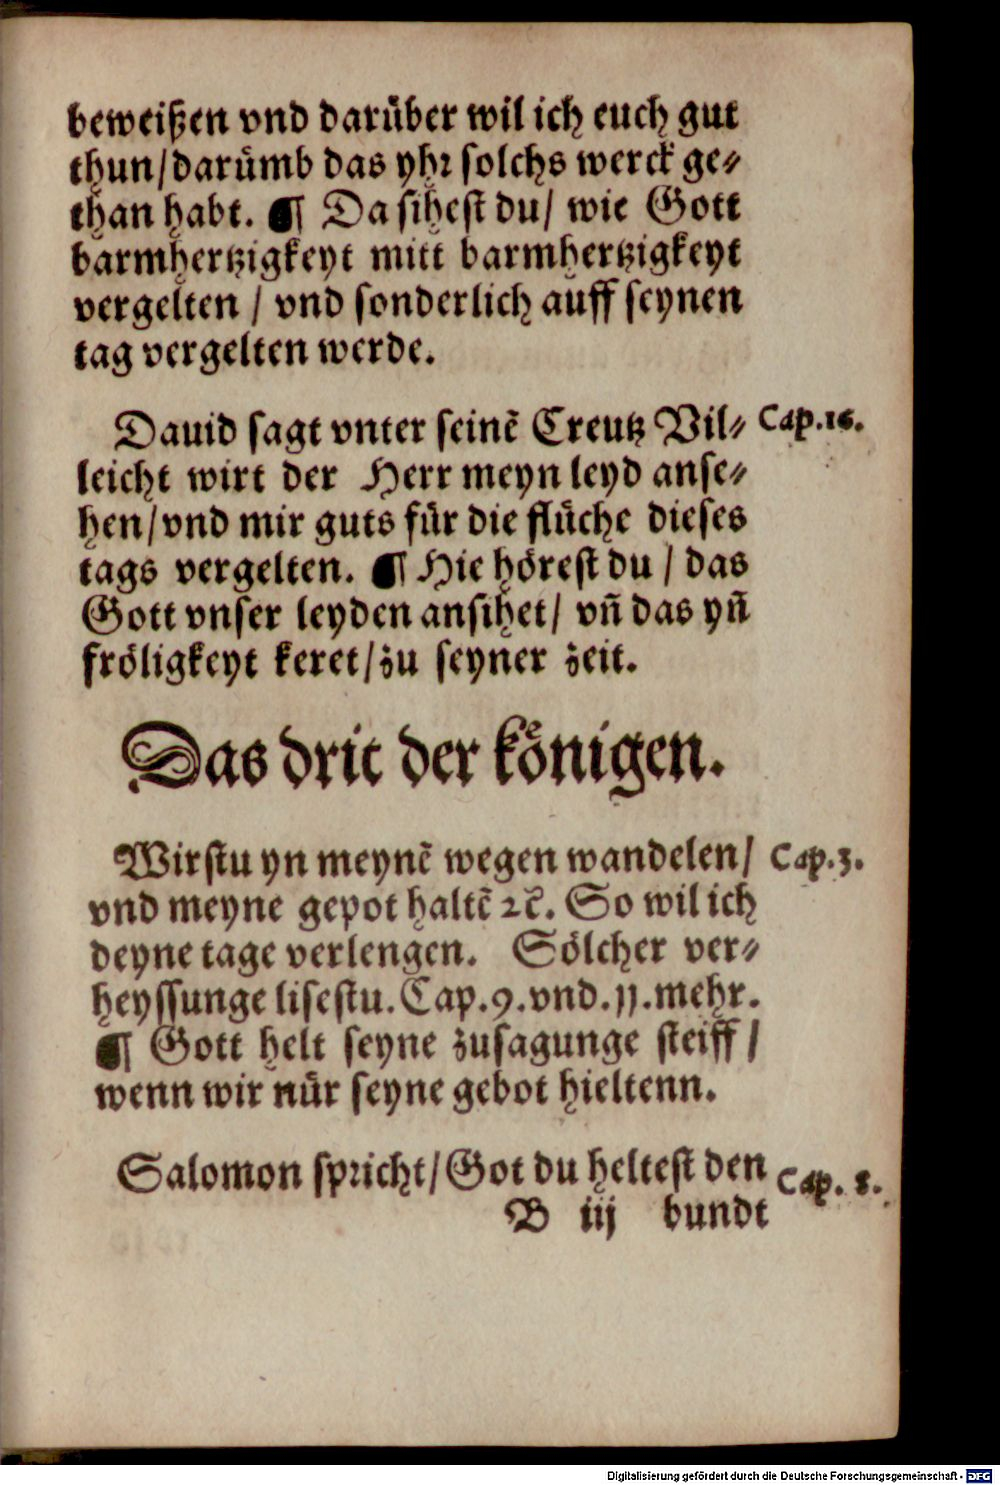 beweißen vnd darüber wil ich euch gut
thun/darümb das yhr solchs werck ge⸗
than habt. ¶ Da sihest du/ wie Gott
barmhertzigkeyt mitt barmhertzigkeyt
vergelten / vnd sonderlich auff seynen
tag vergelten werde.
Dauid sagt vnter seinē Creutz Vil⸗ Cap.16.
leicht wirt der Herr meyn leyd anse⸗
hen/vnd mir guts für die flüche dieses
tags vergelten. ¶ Hie hörest du / das
Gott vnser leyden ansihet/ vn̄ das yn̄
fröligkeyt keret/zu seyner zeit.
Das drit der königen.
Wirstu yn meynē wegen wandelen/ Cap.3.
vnd meyne gepot haltē ꝛc̃. So wil ich
deyne tage verlengen. Sölcher ver⸗
heyssunge lisestu. Cap.9.vnd.11.mehr.
¶ Gott helt seyne zusagunge steiff /
wenn wir nür seyne gebot hieltenn.
Salomon spricht/Got du heltest den Cap. 8.
B iij bundt
Digitalisierung gefördert durch die Deutsche Forschungsgemeinschaft - DFG